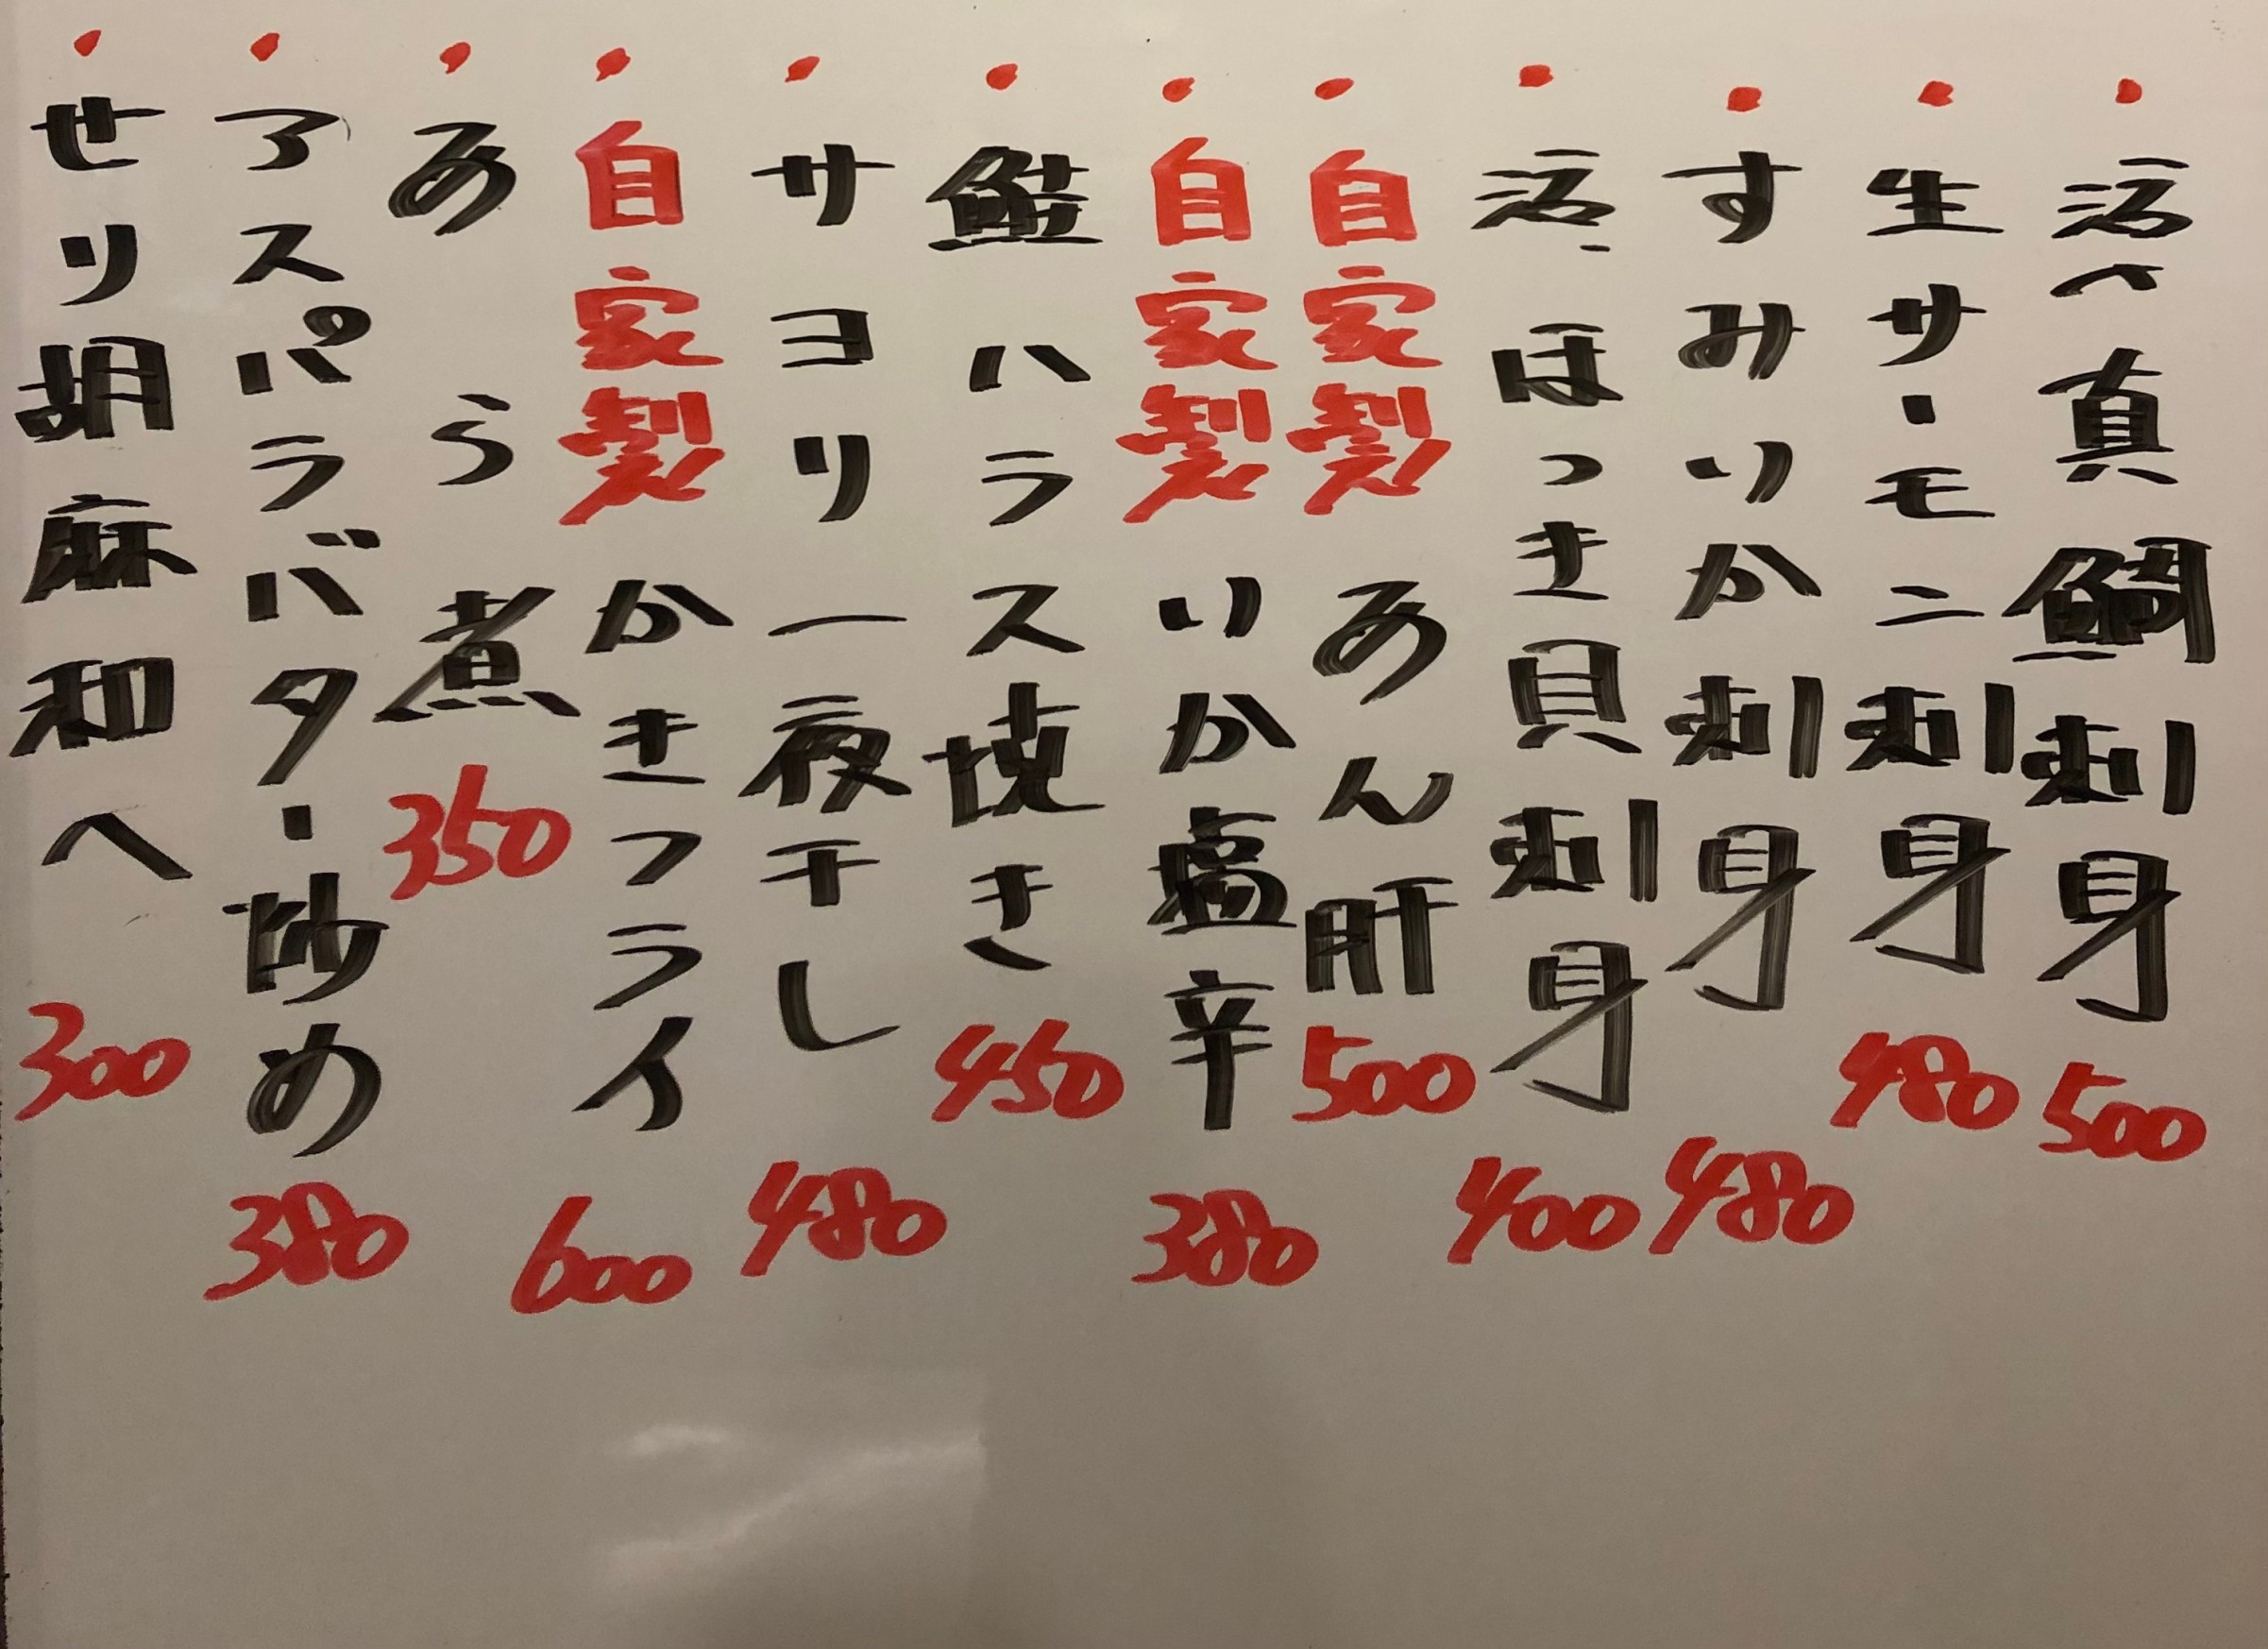 ・活〆真鯛刺身 500
・生サーモン刺身 480
・すみいか刺身 480
・活ほっき貝刺身 400
・自家製あん肝 500
・自家製いか塩辛 380
・鮭ハラス焼き 450
・サヨリ一夜干し 480
・自家製かきフライ 600
・あら煮 350
・アスパラバター炒め 380
・せり胡麻和へ 300